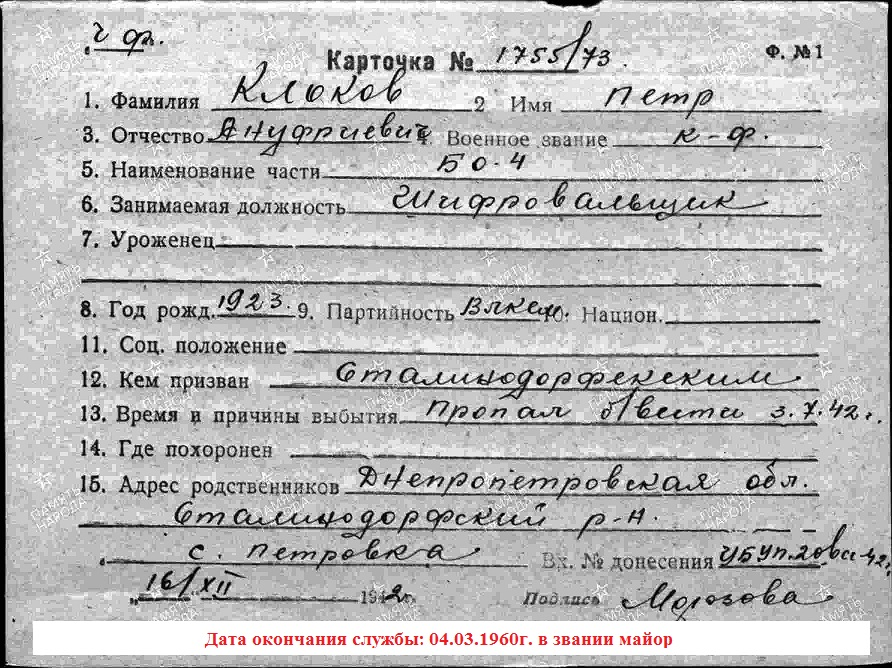 ч ф.
Карточка № 1755/73. Ф. №1
1. Фамилия Клоков 2 Имя Петр
3. Отчество Ануфриевич 4. Военное звание к-ф.
5. Наименование части БО-4
6. Занимаемая должность Шифровальщик
7. Уроженец
8. Год рожд. 1923. 9. Партийность Влксм 10. Национ.
11. Соц. положение
12. Кем призван Сталинодорфскским
13. Время и причины выбытия Пропал б/вести 3.7.42г.
14. Где похоронен
15. Адрес родственников Днепропетровская обл.
Сталинодорфский р-н.
с. Петровка Вх. № донесения 42г.
„16/XII 1942г. Подпись Морозова
Дата окончания службы: 04.03.1960г. в звании майор
ПАМЯТЬ НАРОДА